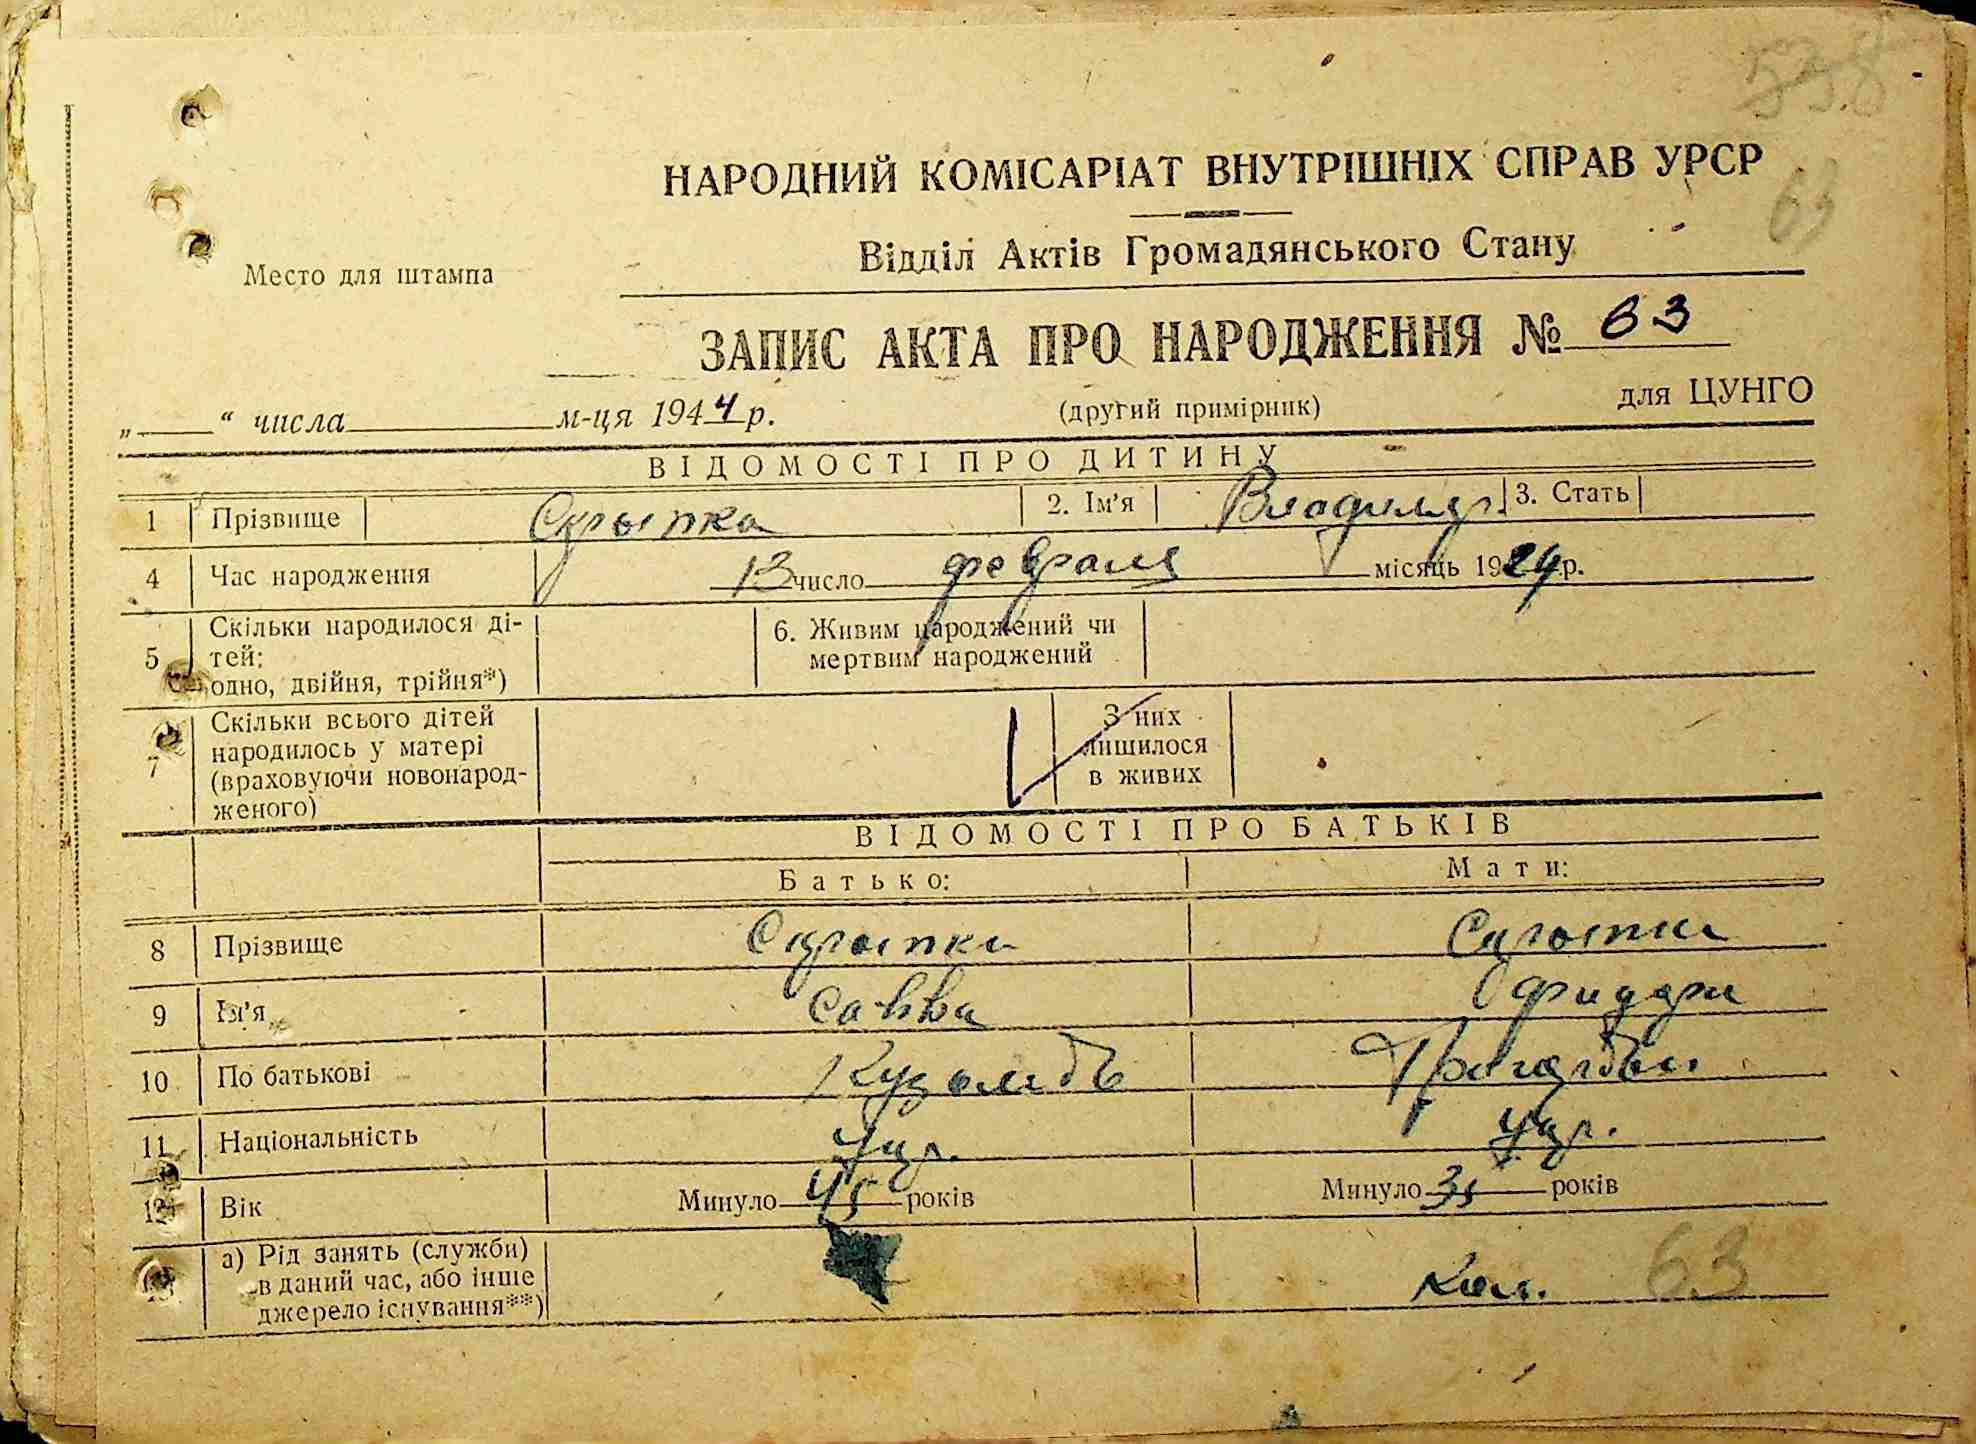 538
НАРОДНИЙ КОМІСАРІАТ ВНУТРІШНІХ СПРАВ УРСР
63
Відділ Актів Громадянського Стану
Место для штампа
ЗАПИС АКТА ПРО НАРОДЖЕННЯ № 63
„ “ числа м-ця 1944 р. (другий примірник) для ЦУНГО
ВІДОМОСТІ ПРО ДИТИНУ
1 Прізвище Скрыпка 2. Ім’я Владимир. 3. Стать
4 Час народження 13 число февраля місяць 1924 р.
5 Скільки народилося ді-
тей:
одно, двійня, трійня*)
6. Живим народжений чи
мертвим народжений
7 Скільки всього дітей
народилось у матері
(враховуючи новонарод-
женого)
З них
лишилося
в живих
ВІДОМОСТІ ПРО БАТЬКІВ
Батько: Мати:
8 Прізвище Скрыпка Скрыпка
9 Ім’я Савва
10 По батькові
11 Національність Укр. Укр.
12 Вік Минуло 45 років Минуло 35 років
13 а) Рід занять (служби)
в даний час, або інше
джерело існування**)
Кол. 63